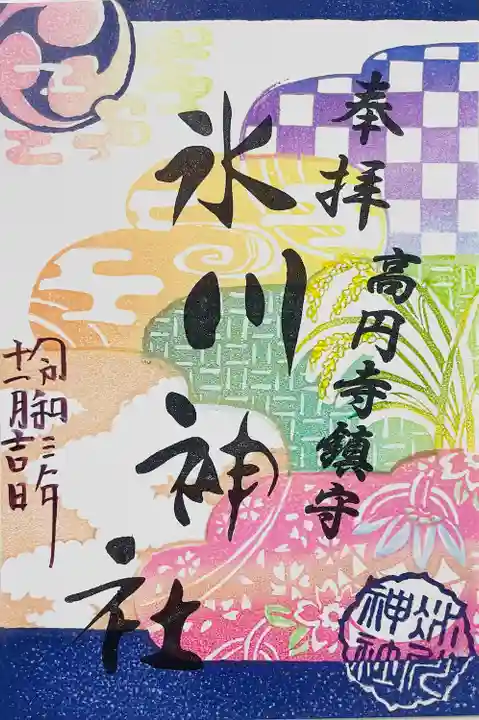 奉拝
高円寺鎮守
氷川神社
令和三年
十一月吉日
氷川
神社